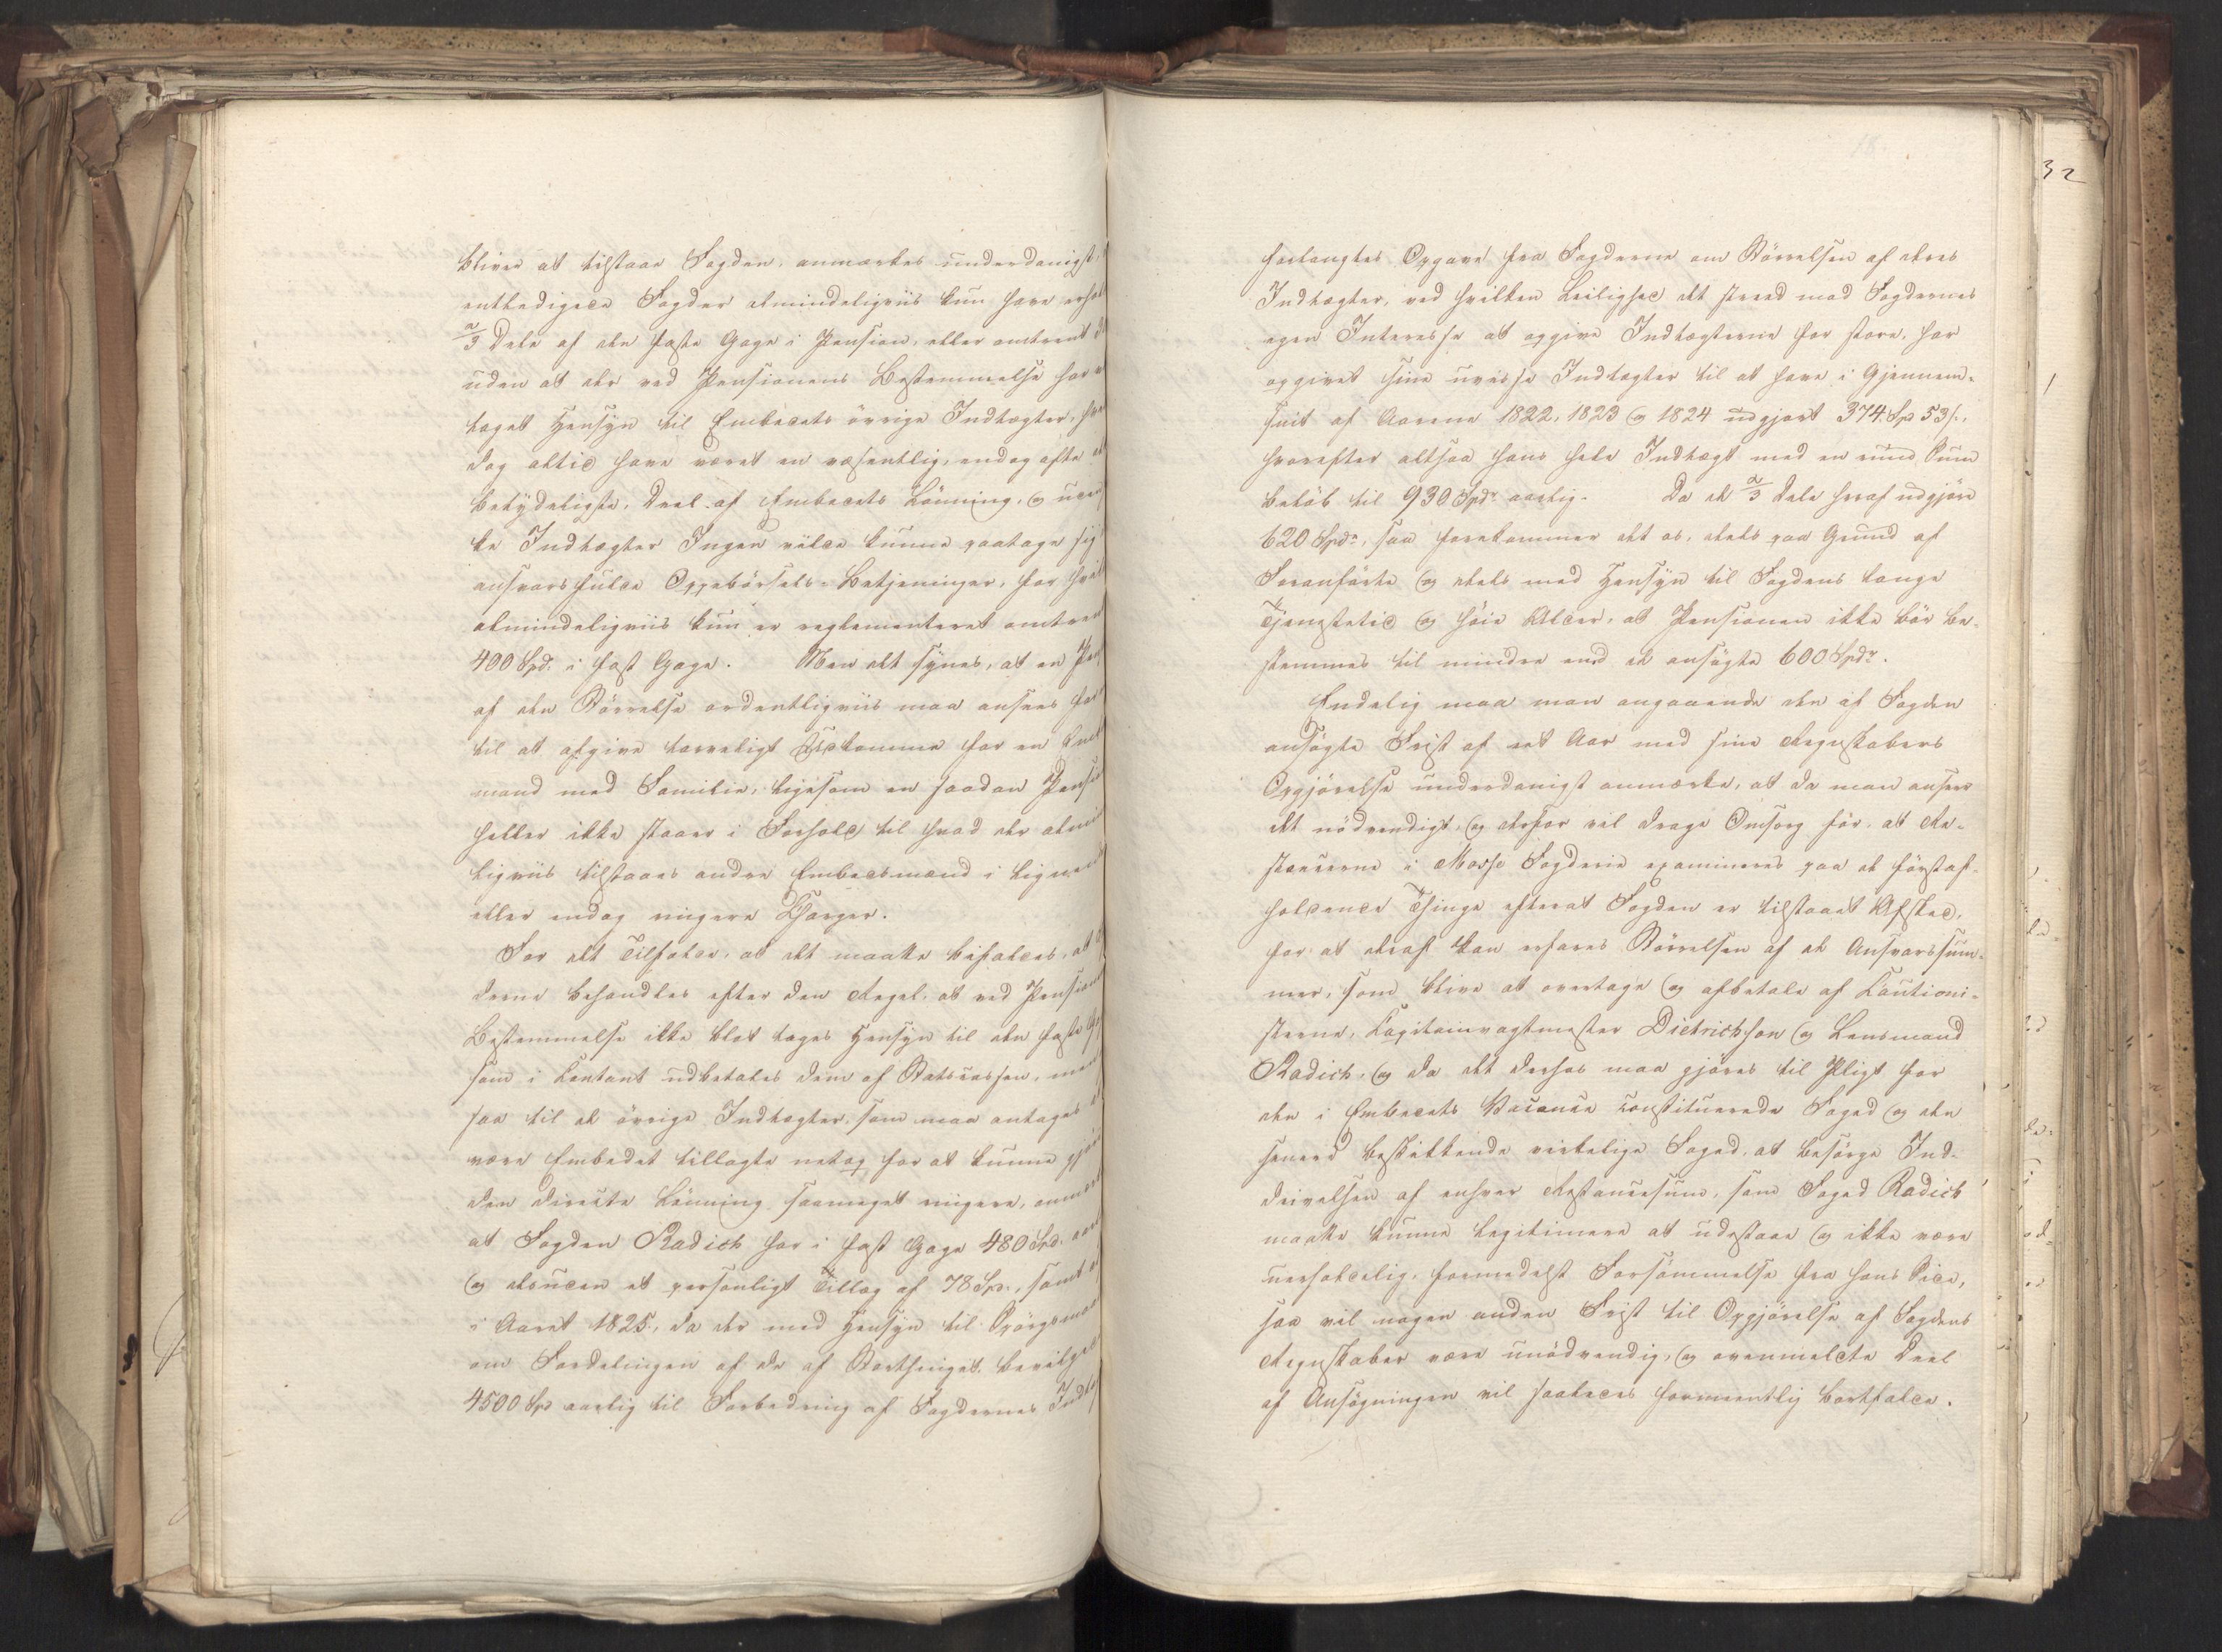 bliver at tilstaae Fogden, anmærkes underdanigst,
entledigede Fogder almindeligviis kun have erhol
2/3 Dele af den faste Gage i Pension, eller omtrent
uden at der ved Pensionens Bestemmelse har
taget Hensyn til Embedets øvrige Indtægter,
dog altid have været en væsentlig, endog ofte
betydeligste, Deel af Embedets Lønning, og uden
ke Indtægter Ingen vilde kunne paatage sig
ansvarsfulde Oppebørsels-Betjeninger, for hvil
almindeligviis kun er reglementeret omtrent
400 Spd. i fast Gage. Men det synes, at en Pen
af den Størrelse ordentligviis maa ansees for
til at afgive tarveligt Udkomme for en Em
mand med Familie, ligesom en saadan Pensi
heller ikke staaer i Forhold til hvad der almi
ligviis tilstaaes andre Embedsmænd i lignen
eller endog ringere Charger.
For det Tilfælde, at det maatte befales, at
derne behandles efter den Regel, at ved Pension
Bestemmelse ikke blot tages Hensyn til den faste
som i Contant udbetales dem af Statscassen, men
saa til de øvrige Indtægter, som maa antages
være Embedet tillagte netop for at kunne gjøre
den directe Lønning saameget ringere, anmær
at Fogden Radich har i fast Gage 480 Spd.
og desuden et personligt Tillæg af 78 Spd., samt
i Aaret 1825, da der med Hensyn til Spørgsmaa
om Fordelingen af de af Storthinget bevilgede
4500 Spd aarlig til Forbedring af Fogdernes Indtæ
32
forlangtes Opgave fra Fogderne om Størrelsen af deres
Indtægter, ved hvilken Leilighed det stred mod Fogdernes
egen Interesse at opgive Indtægterne for store, har
opgivet sine uvisse Indtægter til at have i Gjennem-
snit af Aarene 1822, 1823 og 1824 udgjort 374 Spd 53 s.,
hvorefter altsaa hans hele Indtægt med en rund Sum
beløb til 930 Spdr aarlig. Da de 2/3 Dele heraf udgjøre
620 Spdr, saa forekommer det os, deels paa Grund af
Foranførte og deels med Hensyn til Fogdens lange
Tjenestetid og høie Alder, at Pensionen ikke bør be-
stemmes til mindre end de ansøgte 600 Spdr.
Endelig maa man angaaende den af Fogden
ansøgte Frist af eet Aar med sine Regnskabers
Opgjørelse underdanigst anmærke, at da man ansees
det nødvendigt, og derfor vil drage Omsorg for, at Re-
stancerne i Mosse Fogderie examineres paa de førstaf-
holdende Thinge efterat Fogden er tilstaaet Afsked,
for at deraf kan erfares Størrelsen af de Ansvarssum-
mer, som blive at overtage og afbetale af Cautioni-
sterne, Capitainvagtmester Dietrichson og Lensmand
Radich, og da det derhos maa gjøres til Pligt for
den i Embedets Vacance constituerede Foged og den
senere beskikkende virkelige Foged, at besørge Ind-
drivelsen af enhver Restancesum, som Foged Radich
maatte kunne legitimere at udestaae og ikke være
uerholdelig, formedelst Forsømmelse fra hans Side,
saa vil nogen anden Frist til Opgjørelse af Fogdens
Regnskaber være unødvendig, og ovenmeldte Deel
af Ansøgningen vil saaledes formeentlig bortfalde.